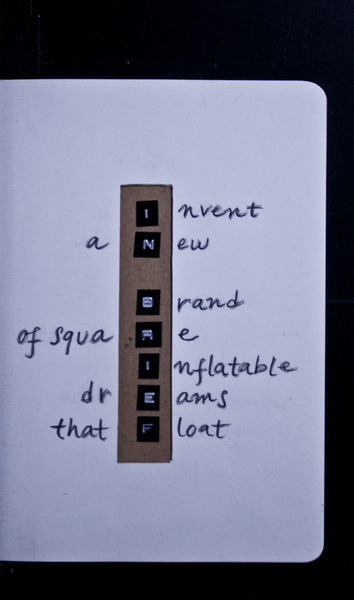 Invent
a New
Brand
of squaRe
Inflatable
drEams
that Float